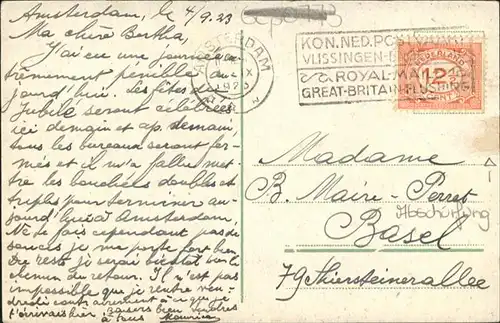 Amsterdam, le 4/9.23
Ma chère Bertha,
J'ai eu une journée ex-
trêmement penible au-
jourd'hui. Les fêtes du
Jubilé seront célébrées
ici demain et ap. demain,
tous les bureaux seront fer-
més et il m'a fallu met-
tre les bouchées doubles et
triples pour terminer au-
jourd'hui à Amsterdam.
Ne te fais cependant pas de
soucis je me porte fort bien
Du reste je serai bientôt sur le
chemin du retour. Il n'est pas
impossible que je rentre ven-
dredi contrairement à ce que je
t'écrivais hier. Baisers bien tendres
à tous Maurice
AMSTERDAM
1923
KON. NED. POSTVAART
VLISSINGEN
ROYAL MAIL
GREAT-BRITAIN-FLUSHING
NEDERLAND
12½
CENT
Madame
B. Maire-Perret
Abschüttung
Basel
79 Thiersteinerallee